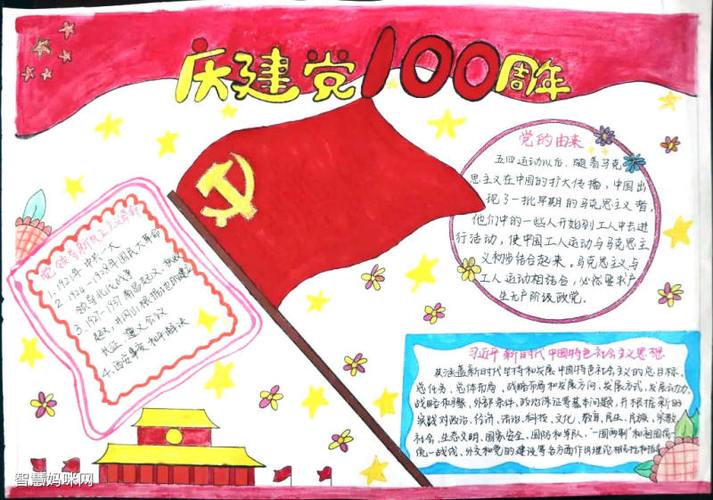 庆建党100周年
党的由来
五四运动以后,随着马克
思主义在中国的扩大传播,中国出
现了一批早期的马克思主义者,
他们中的一些人开始到工人中去进
行活动,使中国工人运动与马克思主
义初步结合起来。马克思主义与
工人运动相结合,必然要求产
生无产阶级政党。
党领导新民主主义革命
1.1921年 中共一大
2.1924-1927年国民大革命
领导北伐战争
3.1927-1937 南昌起义、秋收
起义、井冈山根据地的建立
长征 遵义会议
4.西安事变 和平解决
习近平新时代中国特色社会主义思想
涵盖新时代坚持和发展中国特色社会主义的总目标、
总任务、总体布局、战略布局和发展方向、发展方式、发展动力、
战略步骤、外部条件、政治保证等基本问题,并根据新的
实践对政治、经济、法治、科技、文化、教育、民生、民族、宗教
社会、生态文明、国家安全、国防和军队、“一国两制”和祖国
统一战线、外交和党的建设等各方面作出理论
智慧妈咪网